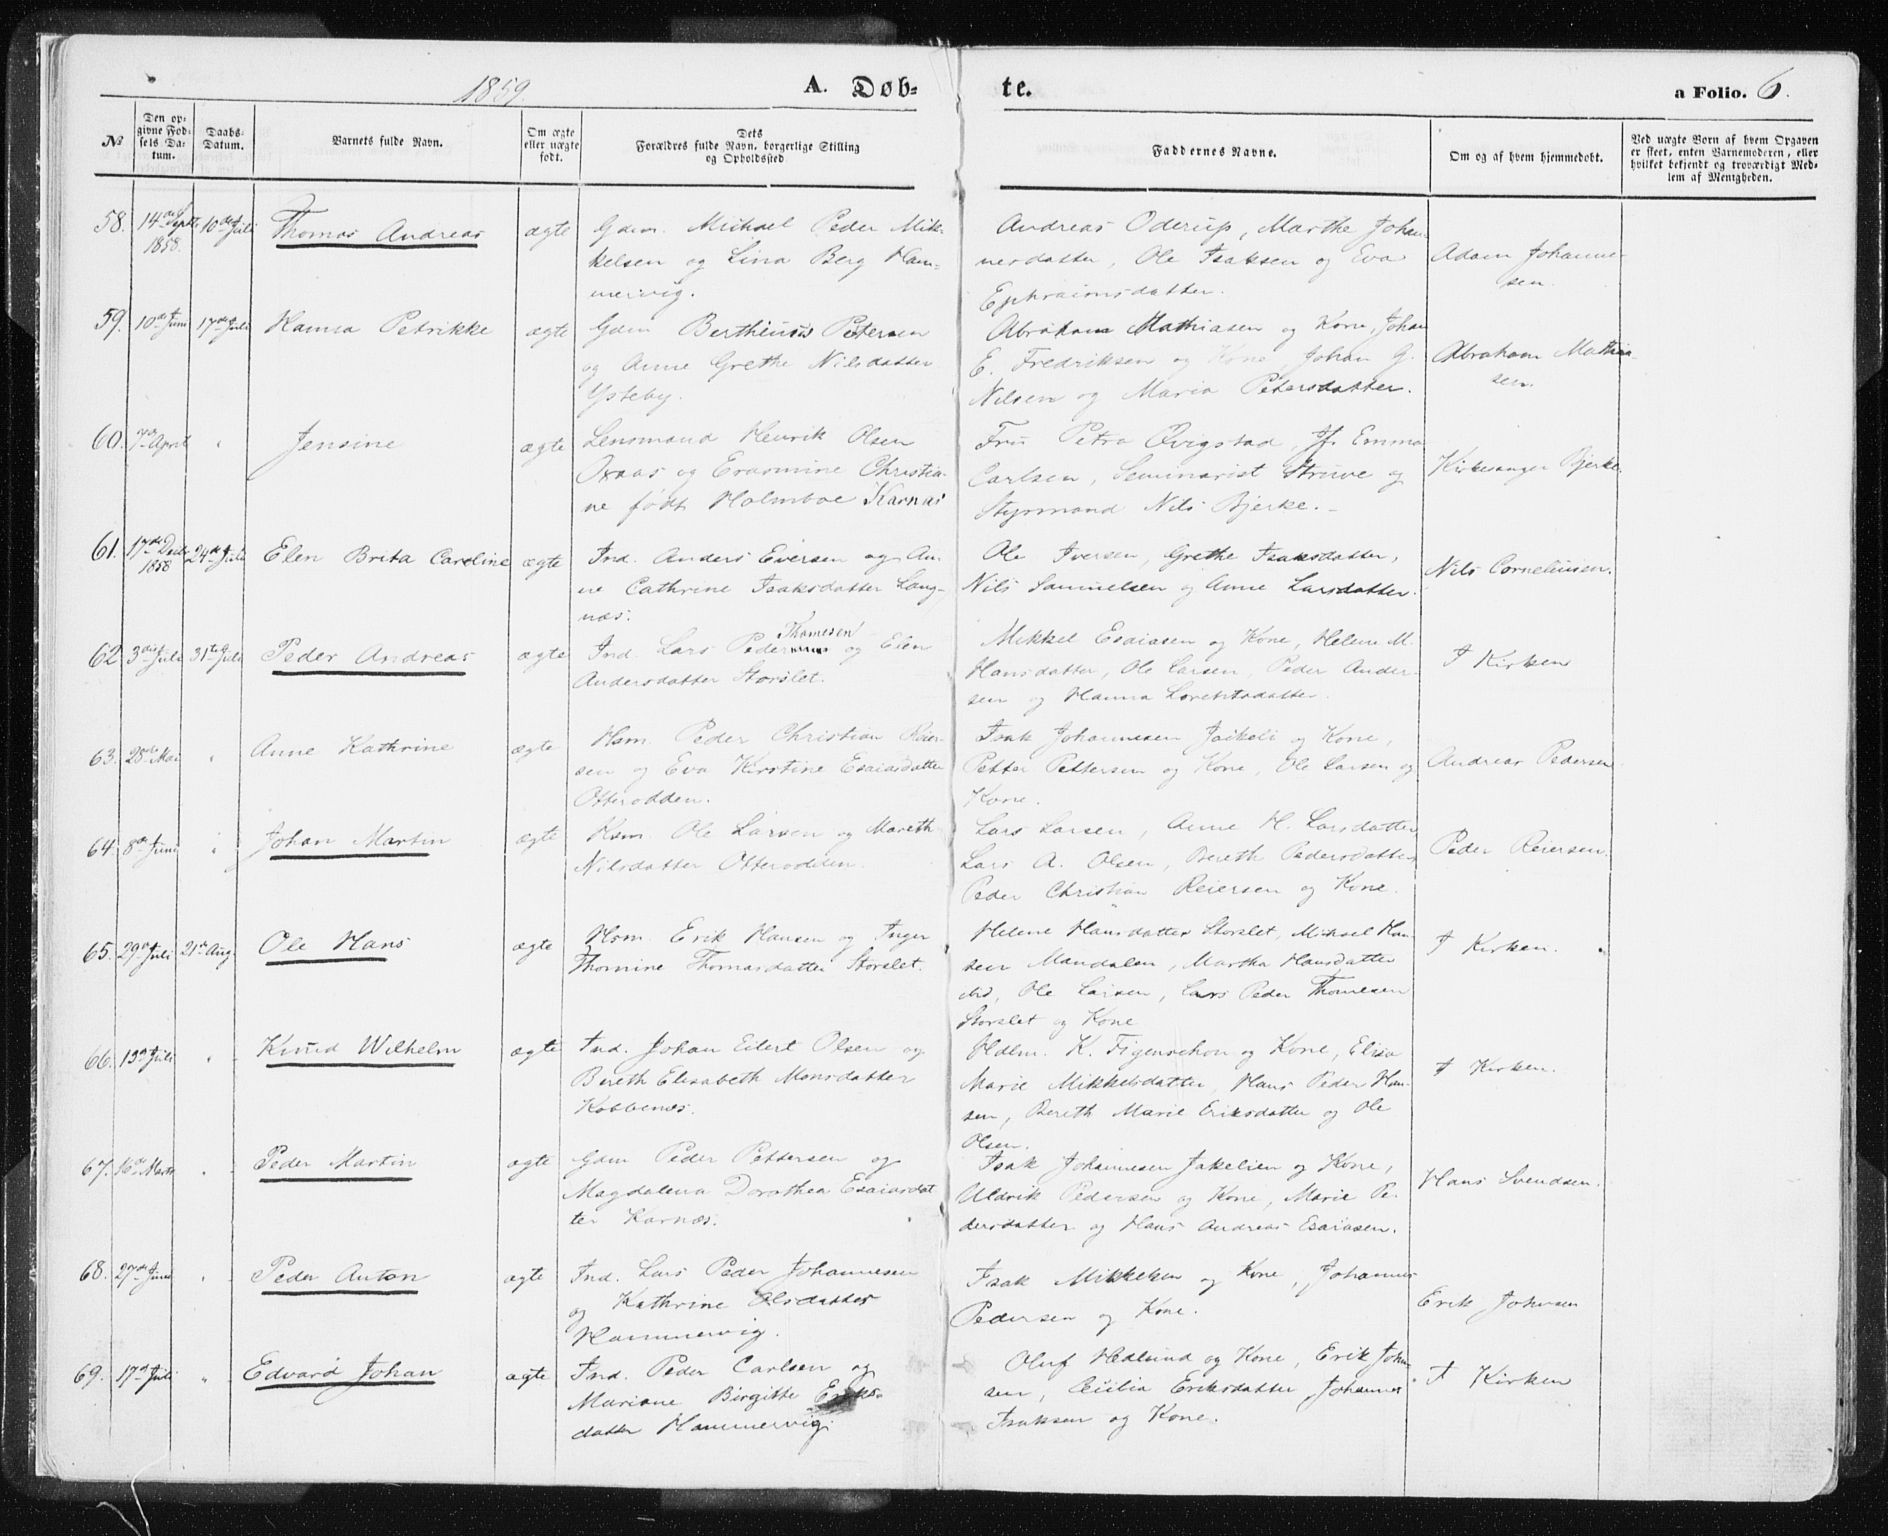 1859. A. Døb- te. a Folio. 6.
№ Den op- givne Fød- sels Da- tum. Daabs- Datum. Barnets fulde Navn. Om ægte eller uægte født. Dets Forældres fulde Navn, borgerlige Stilling og Opholdssted Faddernes Navne. Om og af hvem hjemmedøbt. Ved uægte Børn af hvem Opgaven er skeet, enten Barnemoderen, eller hvilket bekjendt og troværdigt Med- lem af Menigheden.
58. 14de Septbr 1858. 10de Juli Thomas Andreas ægte Gdm. Michael Peder Mik- Andreas Oderup, Marthe Johan-
kelsen og Lina Berg Ham- nesdatter, Ole Isaksen og Eva Adam Johanne-
mervig. Ephraimsdatter. sen.
59. 10de Juni 17de Juli Hanna Petrikke ægte Gdm Bertheus Petersen Abraham Mathiasen og Kone, Johan
og Anne Grethe Nilsdatter E. Fredriksen og Kone, Johan G. Abraham Mathia-
Ysteby. Nilsen og Maria Petersdatter. sen.
60. 7de April " Jensine ægte Lensmand Henrik Olsen Fru Petra Qvigstad, Jfr Emma
Oxaas og Erasmine Christia- Carlsen, Seminarist Struve og Kirkesanger Bjerke
ne født Holmboe Karnæs Styrmand Nils Bjerke.
61. 17de Decbr 1858 24de Juli Elen Brita Caroline ægte Ind. Anders Eversen og An- Ole Iversen, Grethe Isaksdatter,
ne Cathrine Isaksdatter Lang- Nils Samuelsen og Anne Larsdatter. Nils Corneliusen.
næs.
62 3die Juli 31te Juli Peder Andreas ægte Ind. Lars Peder Thomesen og Elen Mikkel Esaiasen og Kone, Helene M.
Andersdatter Storslet. Hansdatter, Ole Larsen, Peder Ander- I Kirken
sen og Hanna Lorentsdatter.
63. 28de Mai " Anne Kathrine ægte Hsm. Peder Christian Reier- Isak Johannesen Jaikeli og Kone,
sen og Eva Kirstine Esaiasdatter Petter Pettersen og Kone, Ole Larsen og Andreas Pedersen
Otterodden. Kone.
64. 8de Juni " Johan Martin ægte Hsm. Ole Larsen og Mareth Lars Larsen, Anne H. Larsdatter
Nilsdatter Otterodden. Lars A. Olsen, Bereth Pedersdatter Peder Reiersen.
Peder Christian Reiersen og Kone.
65. 29de Juli 21de Aug. Ole Hans ægte Hsm. Erik Hansen og Inger Helene Hansdatter Storslet, Mikael Han-
Thomine Thomasdatter Storslet. sen Mandalen, Martha Hansdatter I Kirken.
ibid, Ole Larsen, Lars Peder Thomesen
Storslet og Kone
66. 13de Juli " Knud Wilhelm ægte Ind. Johan Eilert Olsen og Hdlm. K. Figenschou og Kone, Elisa
Bereth Elisabeth Monsdatter Marie Mikkelsdatter, Hans Peder Han- I Kirken.
Kobbenes. sen, Bereth Marie Eriksdatter og Ole
Olsen.
67. 16de Marts " Peder Martin ægte Gdm Peder Pettersen og Isak Johannesen Jakelien og Kone,
Magdalena Dorothea Esaiasdat Uldrik Pedersen og Kone, Marie Pe- Hans Svendsen.
ter Karnæs. dersdatter og Hans Andreas Esaiasen.
68. 27de Juni " Peder Anton ægte Ind. Lars Peder Johannesen Isak Mikkelsen og Kone, Johannes
og Kathrine Olsdatter Pedersen og Kone. Erik Johnsen
Hammervig.
69. 17de Juli " Edvard Johan ægte Ind. Peder Carlsen og Oluf Hedlund og Kone, Erik John-
Mariane Birgitte Eriks- sen, Cecilia Eriksdatter, Johannes I Kirken
datter Hammervig. Isaksen og Kone.